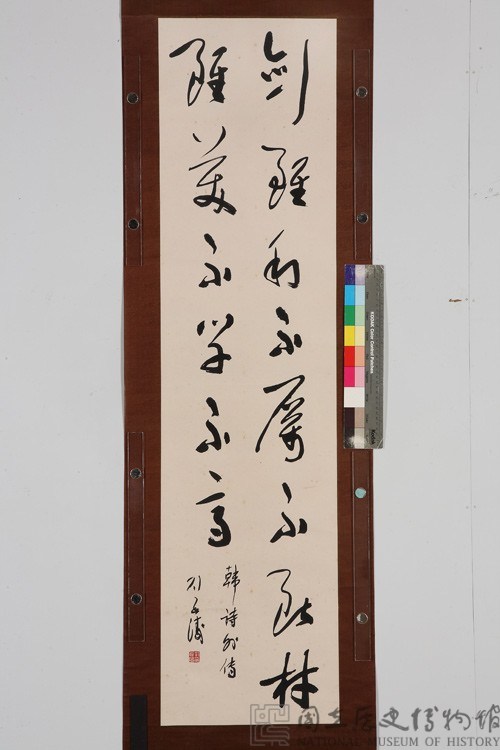 劍雖利不厲不斷材
雖美不學不高
韓詩外傳
國立歷史博物館
NATIONAL MUSEUM OF HISTORY
KODAK Color Control Patches
Kodak